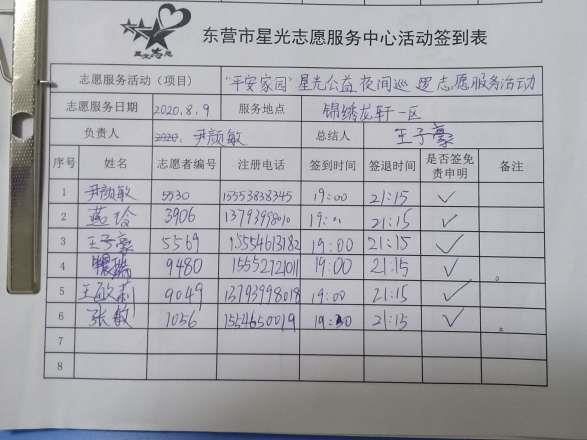 星光志愿
东营市星光志愿服务中心活动签到表
志愿服务活动（项目） "平安家园"星光公益夜间巡逻志愿服务活动
志愿服务日期 2020.8.9 服务地点 锦绣龙轩一区
负责人 2020. 尹颜敏 总结人 王子豪
序号 姓名 志愿者编号 注册电话 签到时间 签退时间 是否签免责申明 备注
1 尹颜敏 5530 15553838345 19:00 21:15 ✓
2 燕玲 3906 19: 21:15 ✓
3 王子豪 5569 15554613182 19:00 21:15 ✓
4 9480 15552721011 19:00 21:15 ✓
5 王敏莉 9049 13793998018 19:00 21:15 ✓
6 张敏 1056 1554650019 21:15 ✓
7
8